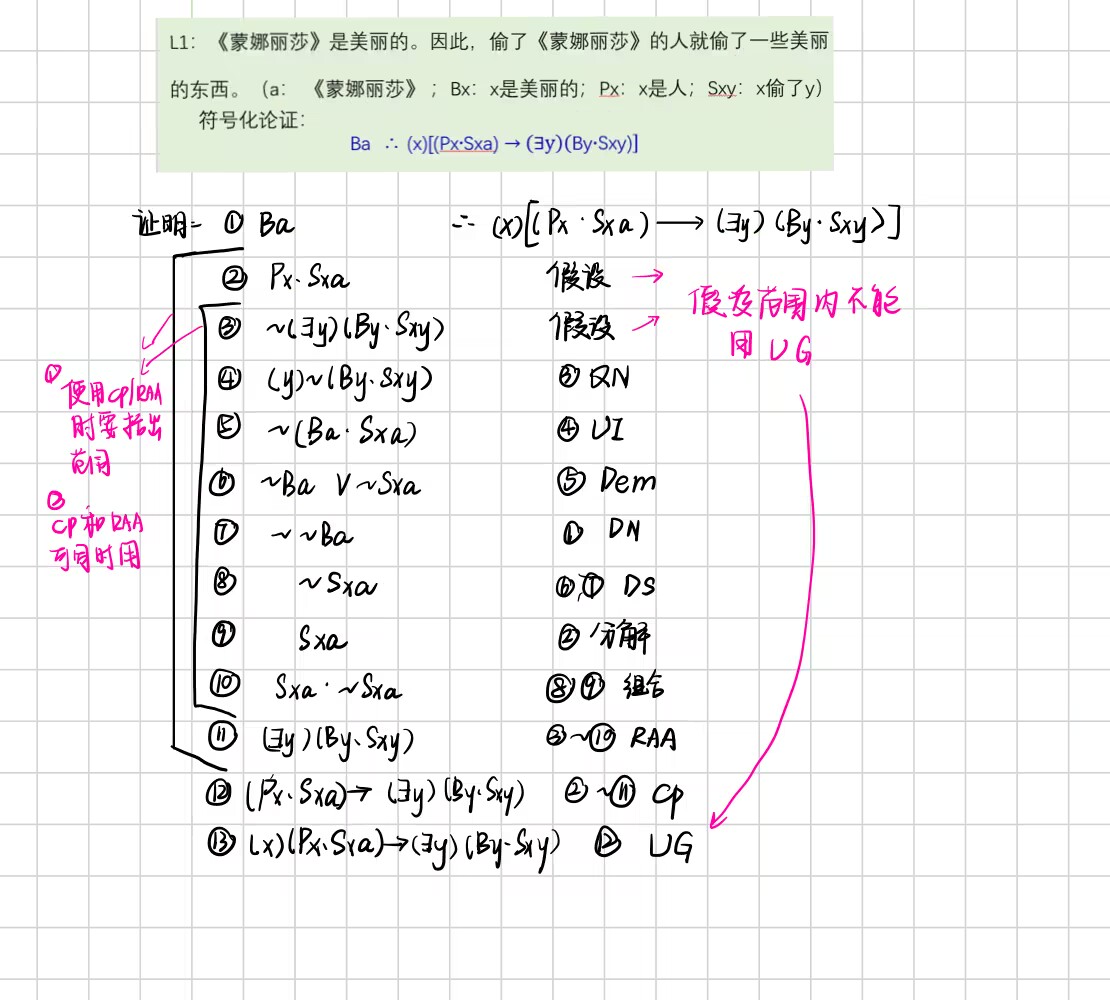 L1: 《蒙娜丽莎》是美丽的。因此，偷了《蒙娜丽莎》的人就偷了一些美丽
的东西。（a： 《蒙娜丽莎》；Bx：x是美丽的；Px：x是人；Sxy：x偷了y）
符号化论证：
Ba ∴ (x)[(Px·Sxa) → (∃y)(By·Sxy)]
证明= ① Ba ∴ (x)[(Px·Sxa) → (∃y)(By·Sxy)]
② Px·Sxa 假设 →
③ ~(∃y)(By·Sxy) 假设 →
假设范围内不能
用 UG
④ (y)~(By·Sxy) ③ QN
⑤ ~(Ba·Sxa) ④ UI
⑥ ~Ba ∨ ~Sxa ⑤ Dem
⑦ ~~Ba ① DN
⑧ ~Sxa ⑥,⑦ DS
⑨ Sxa ② 分解
⑩ Sxa·~Sxa ⑧⑨ 组合
⑪ (∃y)(By·Sxy) ③~⑩ RAA
⑫ (Px·Sxa)→(∃y)(By·Sxy) ②~⑪ Cp
⑬ (x)(Px·Sxa)→(∃y)(By·Sxy) ⑫ UG
①
使用CP/RAA
时要括出
范围
②
CP和RAA
可同时用